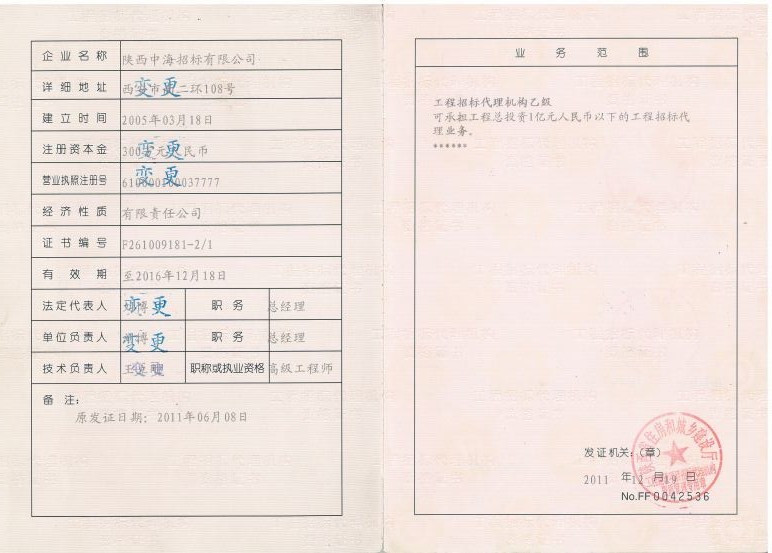 企业名称 陕西中海招标有限公司
详细地址 西 市 二环108号
变更
建立时间 2005年03月18日
注册资本金 300 元 民币
变更
营业执照注册号
变更
经济性质 有限责任公司
证书编号 F261009181-2/1
有效期 至2016年12月18日
法定代表人 变更 职务 总经理
单位负责人 变更 职务 总经理
技术负责人 变更 职称或执业资格 高级工程师
备注:
原发证日期: 2011年06月08日
业务范围
工程招标代理机构乙级
可承担工程总投资1亿元人民币以下的工程招标代
理业务。
******
发证机关:(章)
2011 年 12 月 19 日
No.FF0042536
住房和城乡建设厅